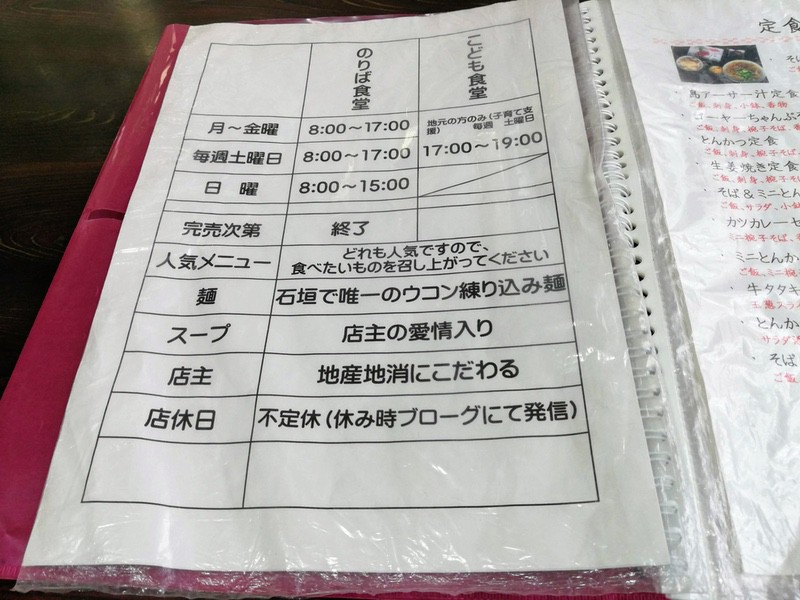 のりば食堂 こども食堂
月～金曜 8:00～17:00 地元の方のみ(子育て支援) 毎週 土曜日
毎週土曜日 8:00～17:00 17:00～19:00
日 曜 8:00～15:00
完売次第 終了
人気メニュー どれも人気ですので、
食べたいものを召し上がってください
麺 石垣で唯一のウコン練り込み麺
スープ 店主の愛情入り
店主 地産地消にこだわる
店休日 不定休(休み時ブローグにて発信)
定食
・そば
島アーサー汁定食
ご飯、刺身、小鉢、香物
・ゴーヤーちゃんぷ
ご飯、刺身、椀子そば、
・とんかつ定食
ご飯、刺身、椀子そば、
・生姜焼き定食
ご飯、刺身、椀子そ
・そば&ミニとん
ご飯、サラダ、小鉢
・カツカレーセ
ミニ椀子そば、
・ミニとんか
ご飯、ミニ椀
・牛タタキ
・とんか
サラダ
・そば
ご飯、